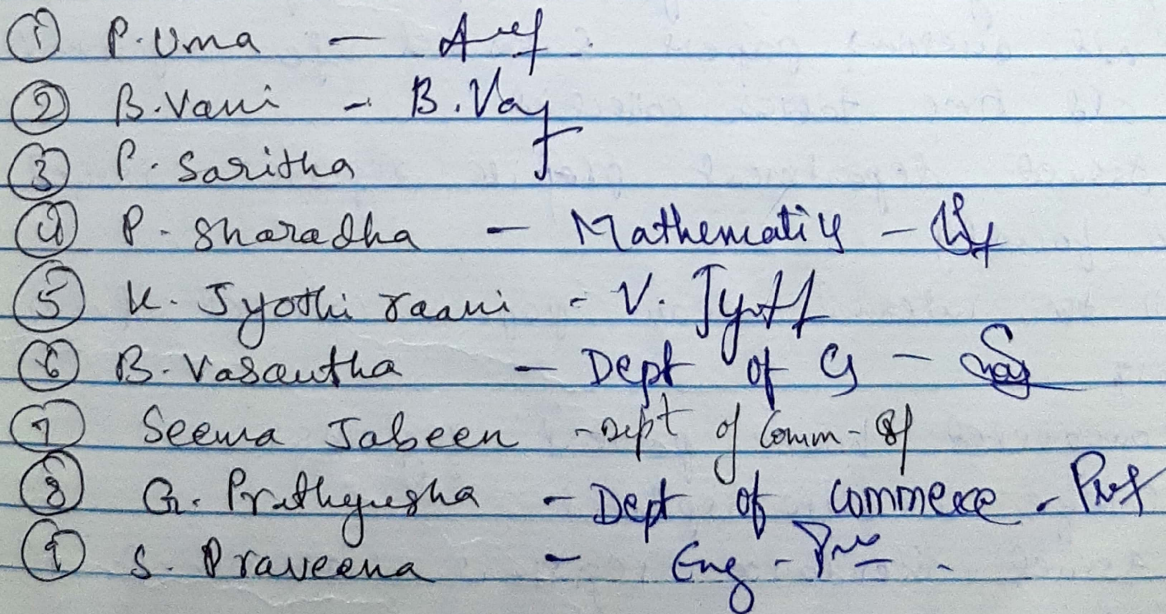 ① P. Uma —
② B. Vani - B. Vaj
③ P. Saritha
④ P. Sharadha — Mathematics —
⑤ K. Jyothi raani - V. Jyoti
⑥ B. Vasantha — Dept of CS —
⑦ Seema Jabeen - Dept of Comm -
⑧ G. Prathyusha - Dept of Commece -
⑨ S. Praveena - Eng -